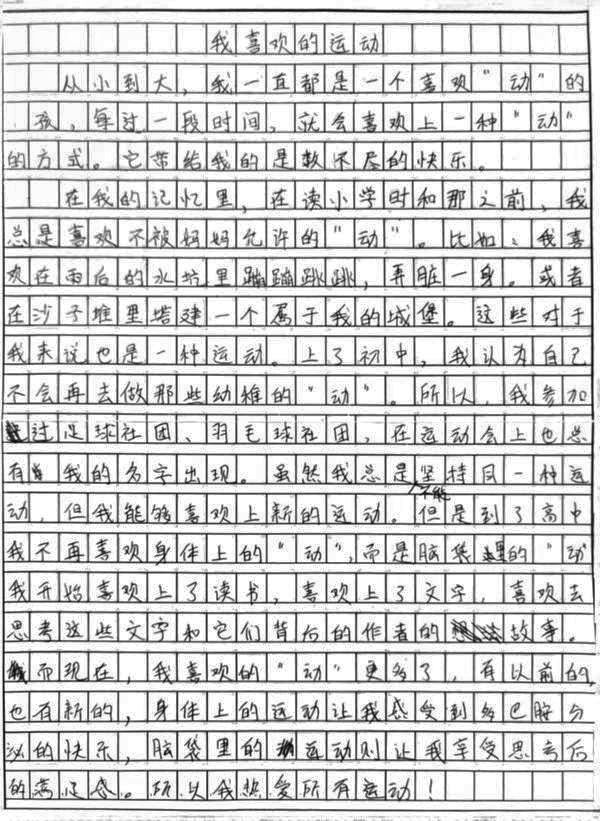 我喜欢的运动
从小到大，我一直都是一个喜欢“动”的
孩，每过一段时间，就会喜欢上一种“动”
的方式。它带给我的是数不尽的快乐。
在我的记忆里，在读小学时和那之前，我
总是喜欢不被妈妈允许的“动”。比如：我喜
欢在雨后的水坑里蹦蹦跳跳，弄脏一身。或者
在沙子堆里塔建一个属于我的城堡。这些对于
我来说也是一种运动。上了初中，我认为自己
不会再去做那些幼稚的“动”。所以，我参加
过足球社团、羽毛球社团，在运动会上也总
有我的名字出现。虽然我总是不能坚持同一种运
动，但我能够喜欢上新的运动。但是到了高中
我不再喜欢身体上的“动”，而是脑袋里的“动
我开始喜欢上了读书，喜欢上了文字，喜欢去
思考这些文字和它们背后的作者的故事。
而现在，我喜欢的“动”更多了，有以前的，
也有新的，身体上的运动让我感受到多巴胺分
泌的快乐，脑袋里的运动则让我享受思考后
的满足感。所以我热爱所有运动！